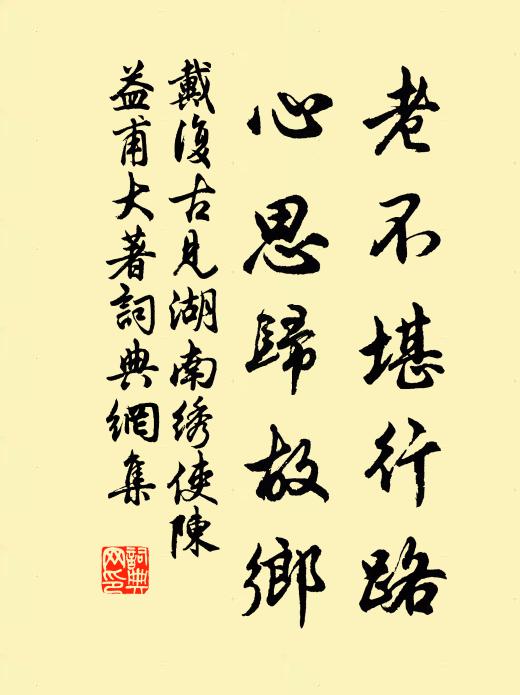 老不堪行路
心思歸故鄉
戴復古見湖南绣使陳
益甫大著詞典網集
詞典网印